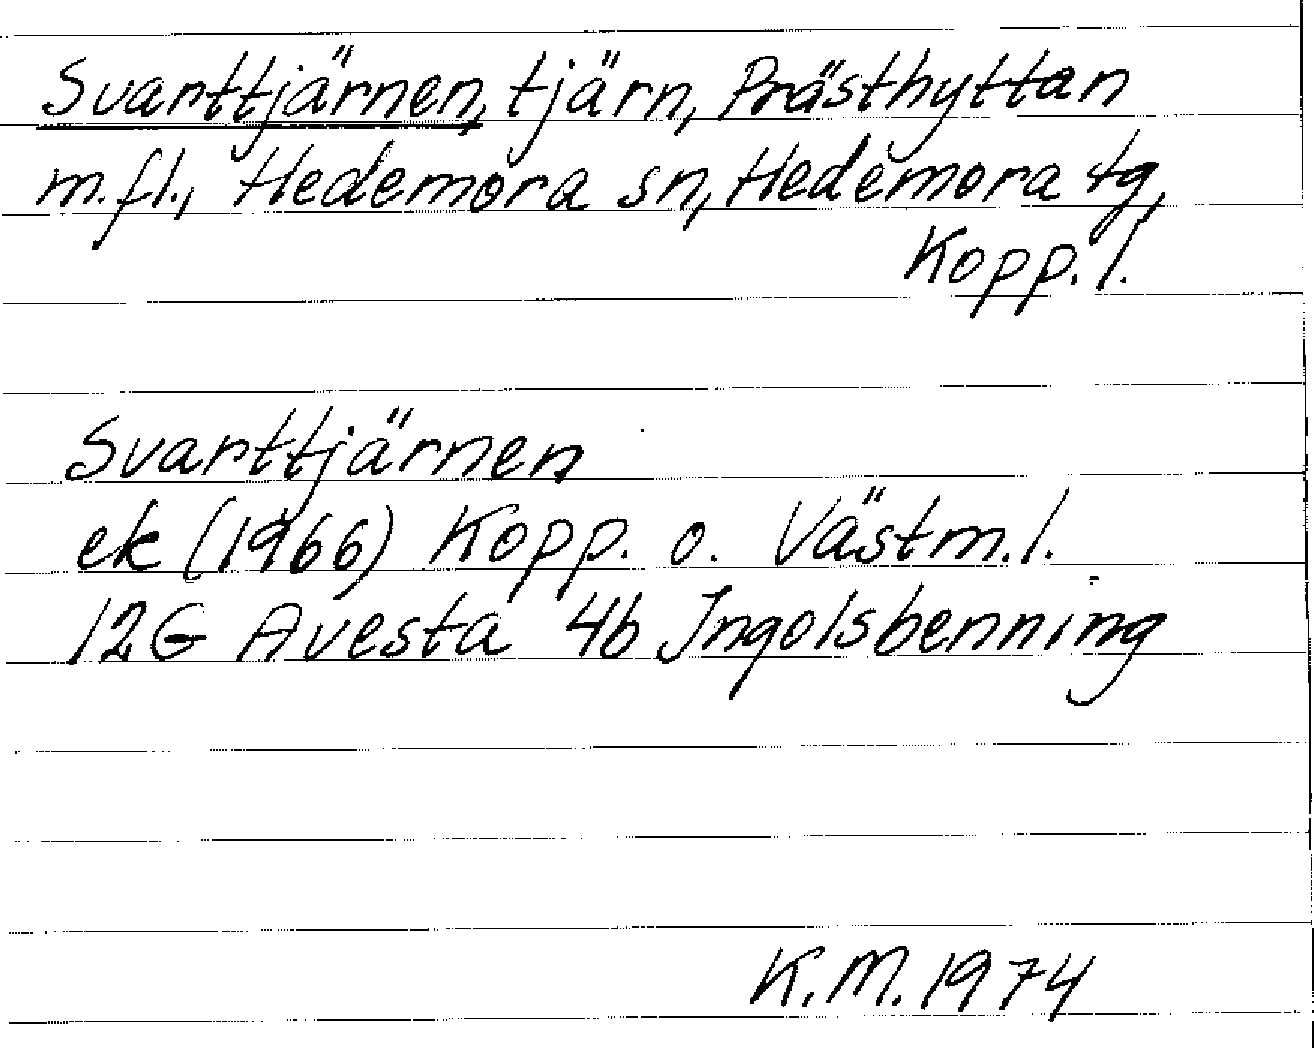 Svarttjärnen, tjärn, Prästhyttan
m.fl., Hedemora sn, Hedemora tg,
Kopp. l.
Svarttjärnen
ek (1966) Kopp. o. Västm. l.
12G Avesta 4b Ingolsbenning
K.M. 1974